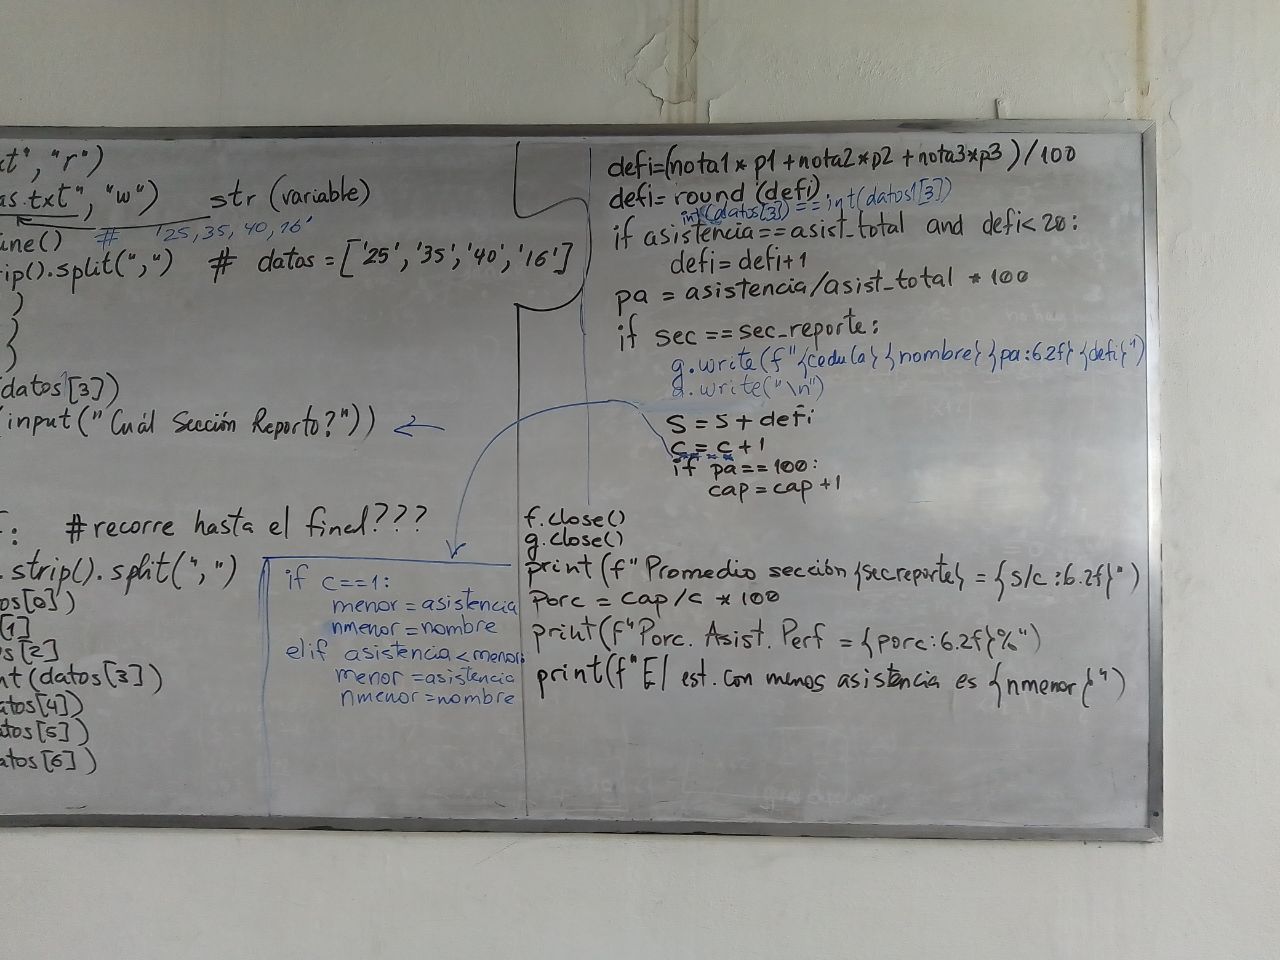 xt", "r")
as.txt", "w") str (variable)
# '25, 35, 40, 16'
line()
rip().split(",") # datos = ['25', '35', '40', '16']
)
)
)
datos[3])
(input("Cuál Sección Reporto?"))
: #recorre hasta el final???
.strip().split(",")
os[0])
[1]
os[2]
nt(datos[3])
atos[4])
atos[5])
atos[6])
if c==1:
menor = asistencia
nmenor = nombre
elif asistencia < menor:
menor = asistencia
nmenor = nombre
defi=(nota1 * p1 + nota2 * p2 + nota3 * p3) / 100
defi = round (defi)
int(datos[3]) == int(datos1[3])
if asistencia == asist_total and defi < 20:
defi = defi + 1
pa = asistencia/asist_total * 100
if sec == sec_reporte:
g.write(f"{cedula} {nombre} {pa:6.2f} {defi}")
g.write("\n")
S = S + defi
c = c + 1
if pa == 100:
cap = cap + 1
f.close()
g.close()
print (f"Promedio sección {secreporte} = {s/c:6.2f}")
Porc = cap/c * 100
print(f"Porc. Asist. Perf = {porc:6.2f}%")
print(f"El est. con menos asistencia es {nmenor}")